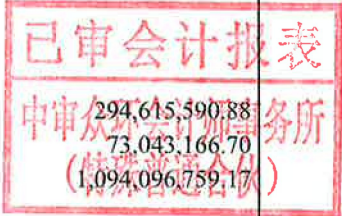 已审会计报表
中审众环会计师事务所
(特殊普通合伙)
294,615,590.88
73,043,166.70
1,094,096,759.17